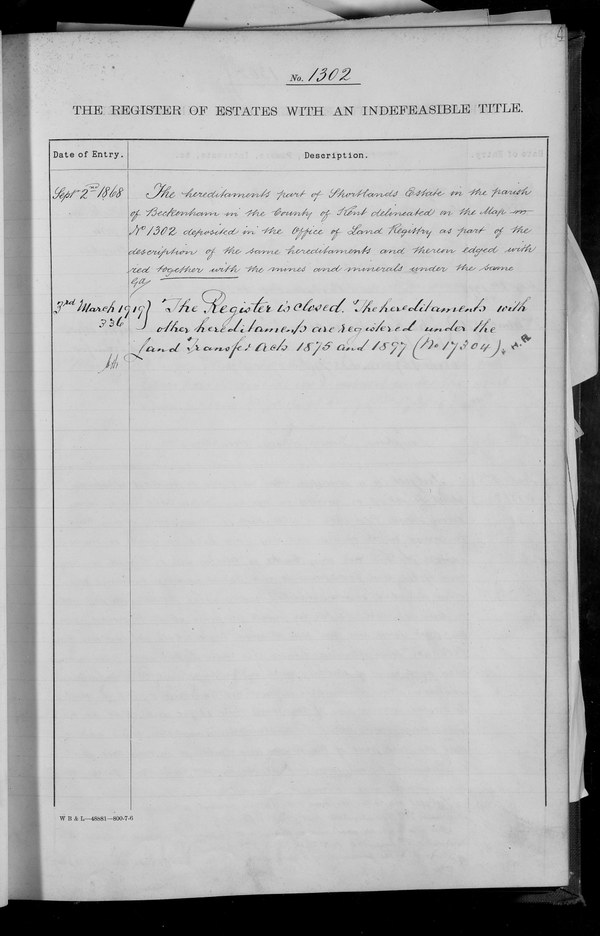 4
No. 1302
THE REGISTER OF ESTATES WITH AN INDEFEASIBLE TITLE.
Date of Entry. Description.
Sept 2nd 1868 The hereditaments part of Shortlands Estate in the parish
of Beckenham in the County of Kent delineated on the Map on
No 1302 deposited in the Office of Land Registry as part of the
description of the same hereditaments and therein edged with
red together with the mines and minerals under the same
3rd March 1919 } The Register is closed. The hereditaments with
336 other hereditaments are registered under the
Land Transfer Acts 1875 and 1897 (No 17304).
W B & L—48881—800-7-6